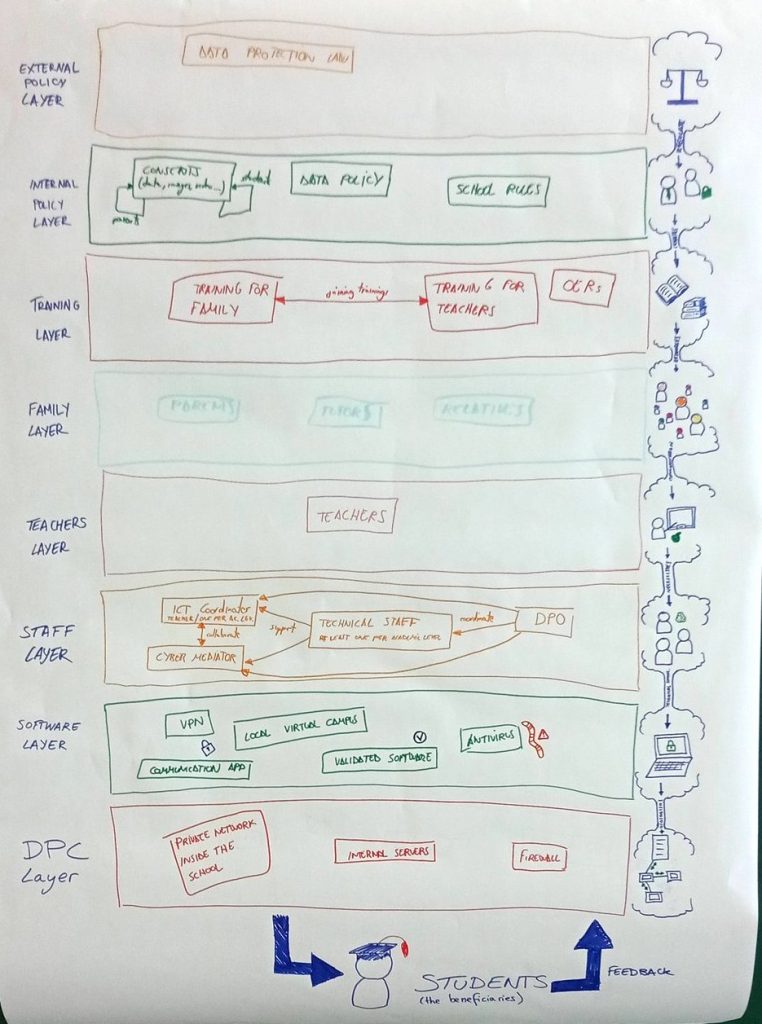 EXTERNAL
POLICY
LAYER
DATA PROTECTION LAW
INTERNAL
POLICY
LAYER
CONSENTS
(data, images, video...)
parents
student
DATA POLICY
SCHOOL RULES
TRAINING
LAYER
TRAINING FOR
FAMILY
joining trainings
TRAINING FOR
TEACHERS
OERs
FAMILY
LAYER
PARENTS
TUTORS
RELATIVES
TEACHERS
LAYER
TEACHERS
STAFF
LAYER
ICT Coordinator
TEACHER/ONE PER AC. LEV.
collaborate
CYBER MEDIATOR
support
TECHNICAL STAFF
AT LEAST ONE PER ACADEMIC LEVEL
coordinate
DPO
SOFTWARE
LAYER
VPN
LOCAL VIRTUAL CAMPUS
ANTIVIRUS
COMMUNICATION APP
VALIDATED SOFTWARE
DPC
Layer
PRIVATE NETWORK
INSIDE THE
SCHOOL
INTERNAL SERVERS
FIREWALL
STUDENTS
(the beneficiaries)
FEEDBACK